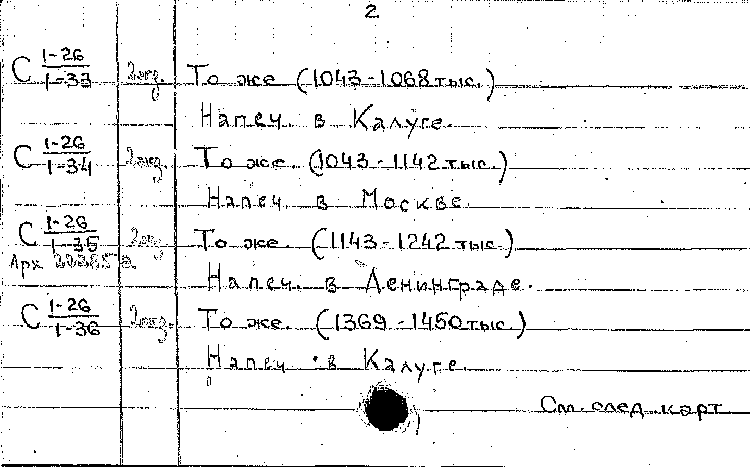 2
С 1-26/1-33 2 экз. То же (1043-1068 тыс.)
Напеч. в Калуге.
С 1-26/1-34 2 экз. То же. (1043-1142 тыс.)
Напеч. в Москве.
С 1-26/1-35 2 экз. То же. (1143-1242 тыс.)
Арх
Напеч. в Ленинграде.
С 1-26/1-36 2 экз. То же. (1369-1450 тыс.)
Напеч. в Калуге.
См. след. карт